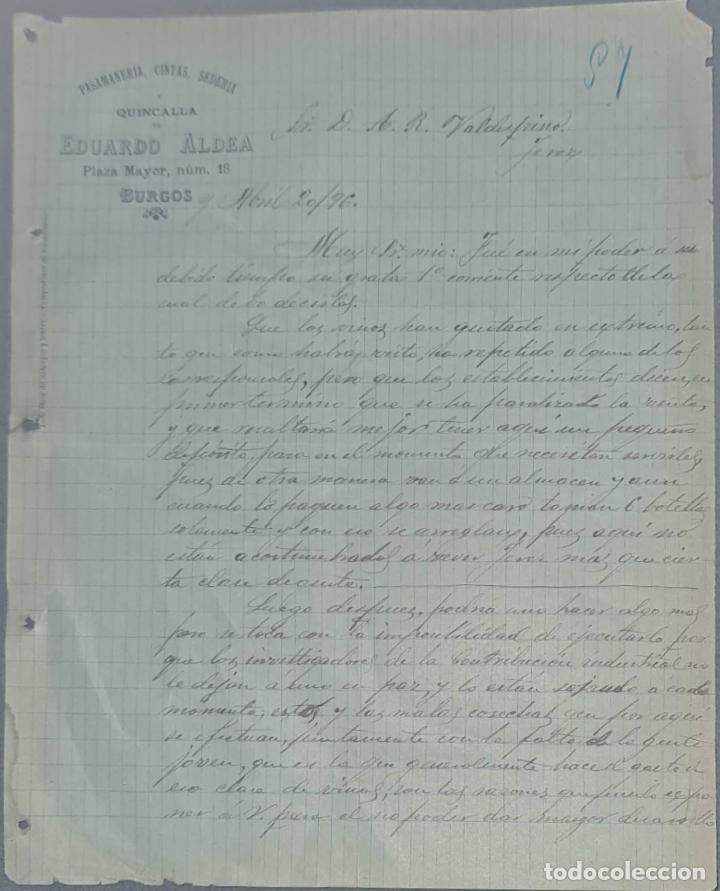 PASAMANERÍA, CINTAS, SEDERÍA
Y
QUINCALLA
DE
EDUARDO ALDEA
Plaza Mayor, núm. 18
BURGOS
9 Abril 20/96.
Sr. D. A. R. Valdespino.
Jerez
Muy Sr. mio: Fué en mi poder á su
debido tiempo su grata 1º corriente respecto de la
cual debo decirle.
Que los vinos han gustado en extremo, tan
to que como habrá visto, ha repetido alguno de los
corresponsales, pero que los establecimientos dicen, en
primer termino que se ha paralizado la venta,
y que resultaria mejor tener aqui un pequeño
deposito, para en el momento que necesitan servirles
pues de otra manera van á un almacen y aun
cuando lo paguen algo mas caro toman 6 botellas
solamente y con eso se arreglan, pues aqui no
están acostumbrados á bever Jerez más que cier-
ta clase de gente.
Luego despues, podria uno hacer algo mas
pero se toca con la imposibilidad de ejecutarlo por
que los investigadores de la Contribución industrial no
le dejan á uno en paz, y lo están á cada
momento, esto, y las malas cosechas que por aqui
se efectuan, juntamente con la falta de la gente
joven, que es la que generalmente hace el gasto de
esa clase de vinos, son las razones que puedo expo
ner á V. para el no poder dar mayor desarrollo
todocoleccion.net